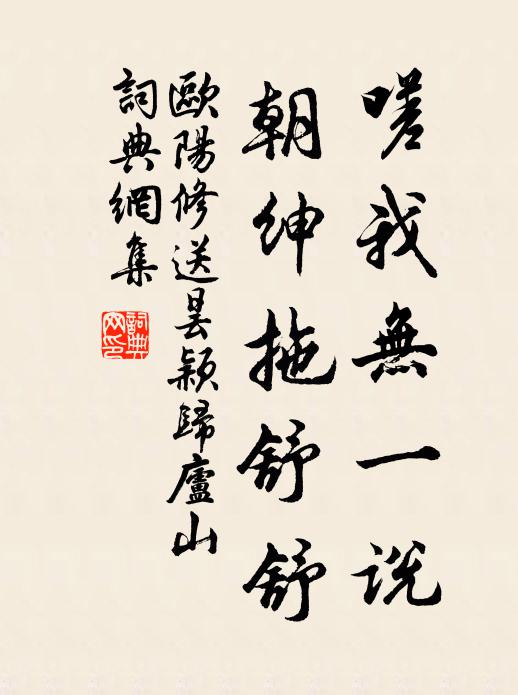 嗟我無一説
朝紳拖舒舒
歐陽修送曇穎歸廬山
詞典網集
詞典網印